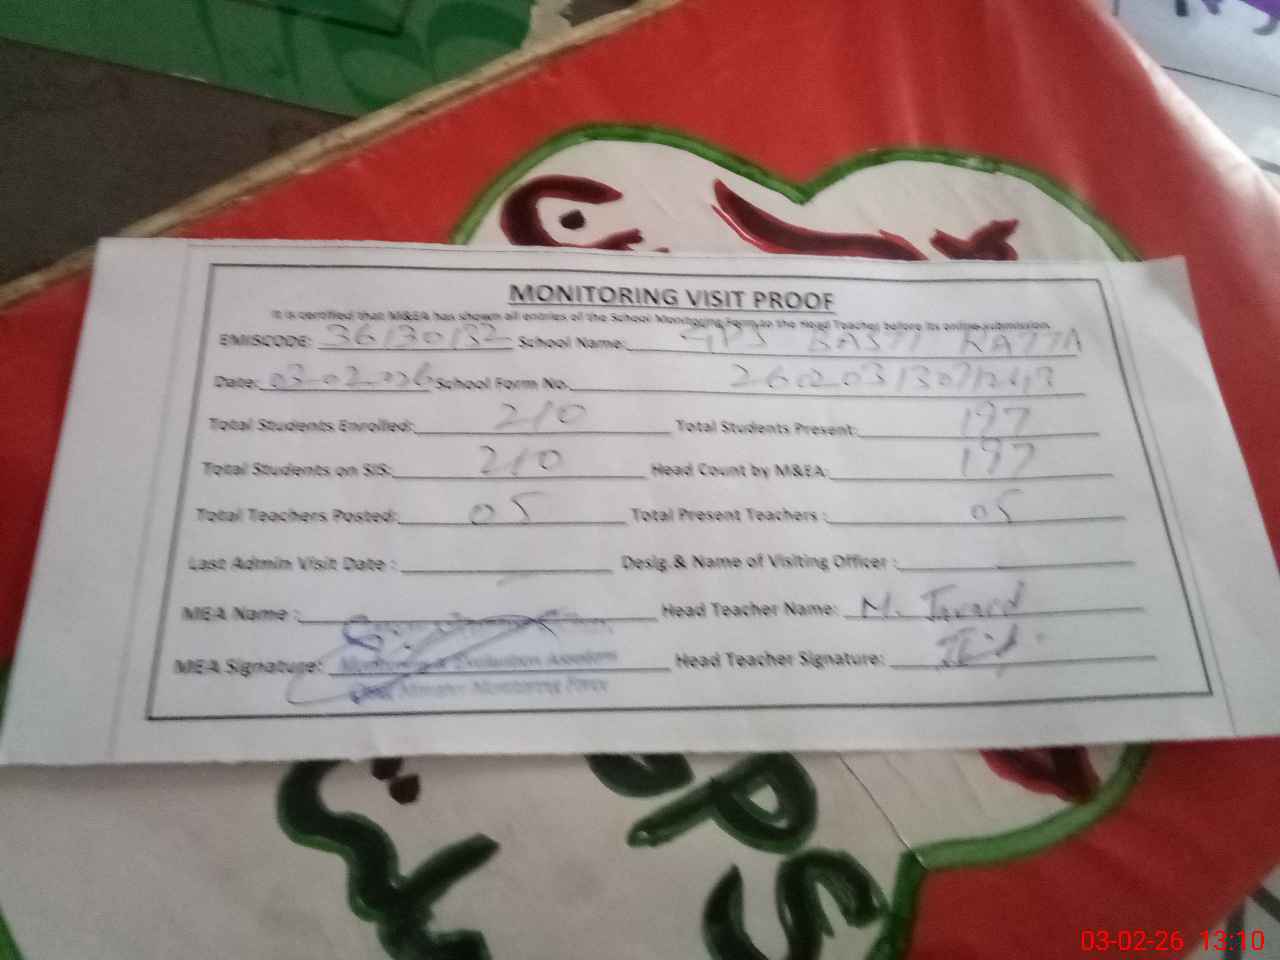 MONITORING VISIT PROOF
It is certified that M&EA has shown all entries of the School Monitoring Form to the Head Teacher before its online submission.
EMISCODE: 36130132 School Name: GPS BASTI RATTA
Date: 03-02-2026 School Form No.
Total Students Enrolled: 210 Total Students Present: 197
Total Students on SIS: 210 Head Count by M&EA: 197
Total Teachers Posted: 05 Total Present Teachers : 05
Last Admin Visit Date : Desig & Name of Visiting Officer :
MEA Name : Head Teacher Name: M. Javaid
MEA Signature: Monitoring & Evaluation Assistant Head Teacher Signature:
Chief Minister Monitoring Force
PS
03-02-26 13:10